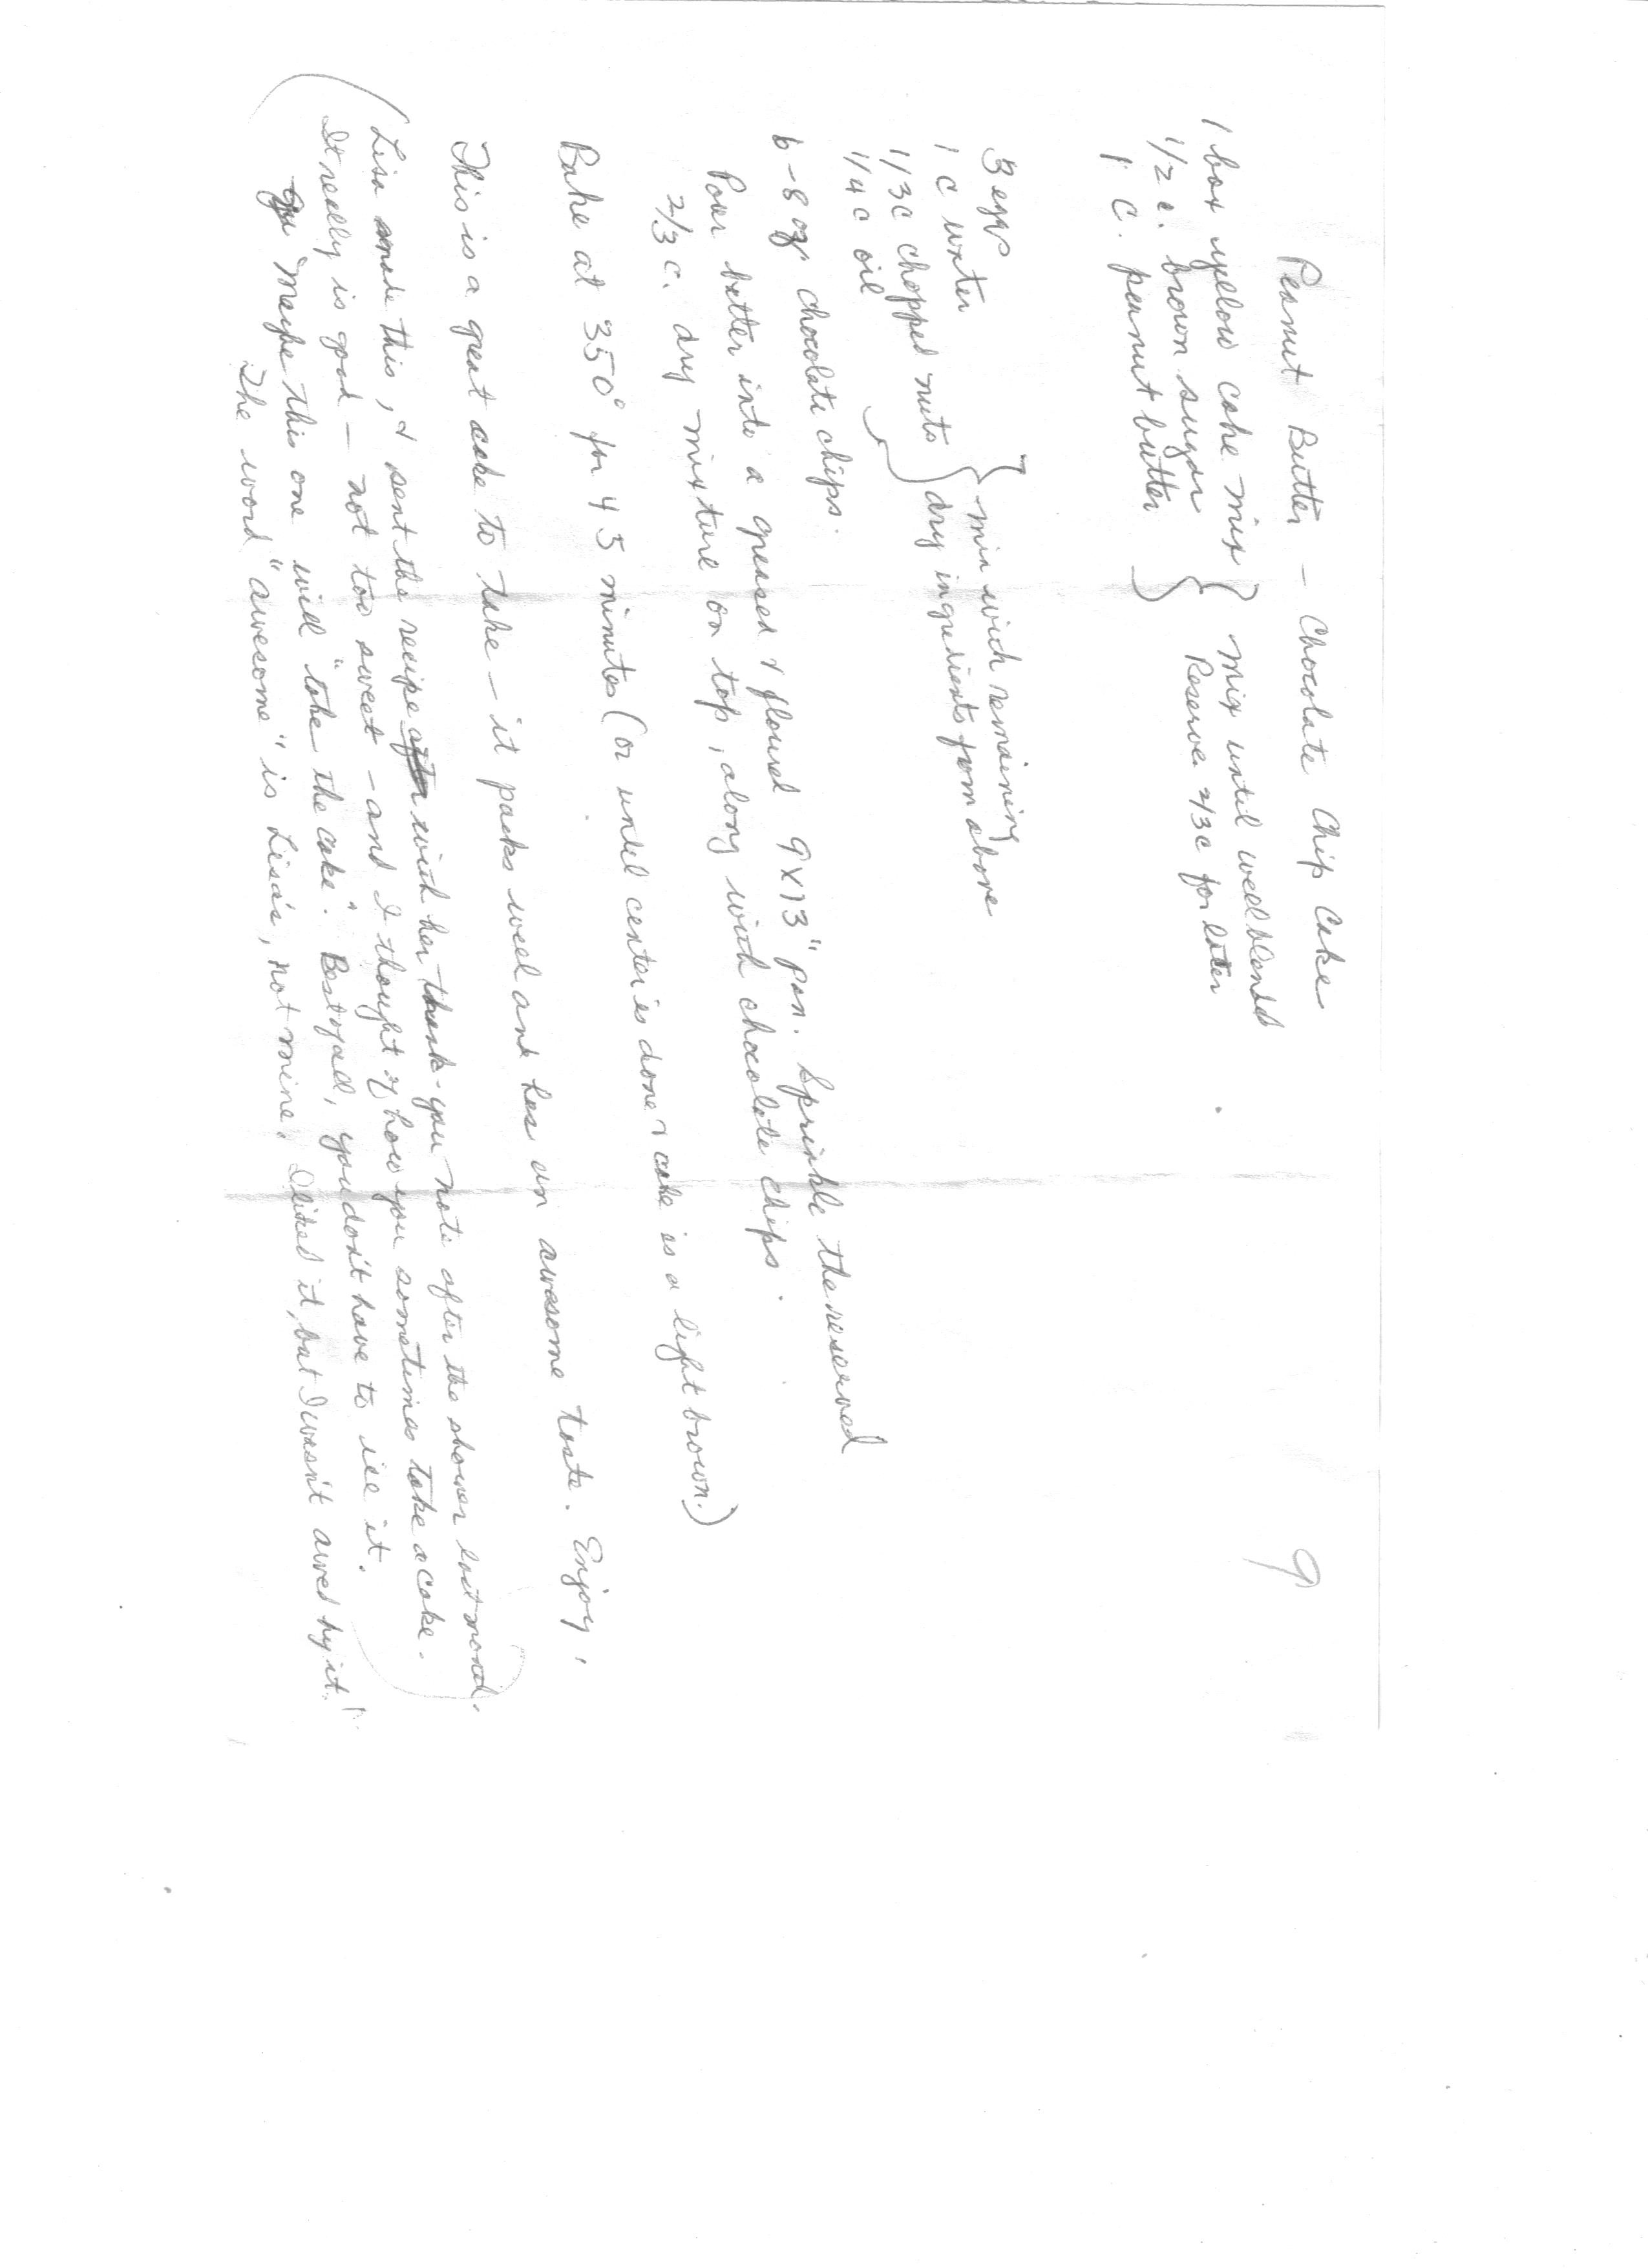 9
Peanut Butter - Chocolate Chip Cake
1 box yellow cake mix } mix until well blended
1/2 c. brown sugar } Reserve 2/3 c for later
1 C. peanut butter
3 eggs } mix with remaining
1 c water } dry ingredients from above
1/3 c chopped nuts
1/4 c oil
6-8 ozs chocolate chips.
Pour batter into a greased & floured 9x13" pan. Sprinkle the reserved
2/3 c. dry mixture on top, along with chocolate chips.
Bake at 350° for 45 minutes (or until center is done & cake is a light brown.)
This is a great cake to take - it packs well and has an awesome taste. Enjoy!
(Lisa made this, & sent the recipe after with her thank-you note after the shower last month.
It really is good - not too sweet - and I thought of how you sometimes take a cake.
Maybe this one will "take the cake". Best of all, you don't have to ice it.
The word "awesome" is Lisa's, not mine. I liked it, but I wasn't awed by it!)